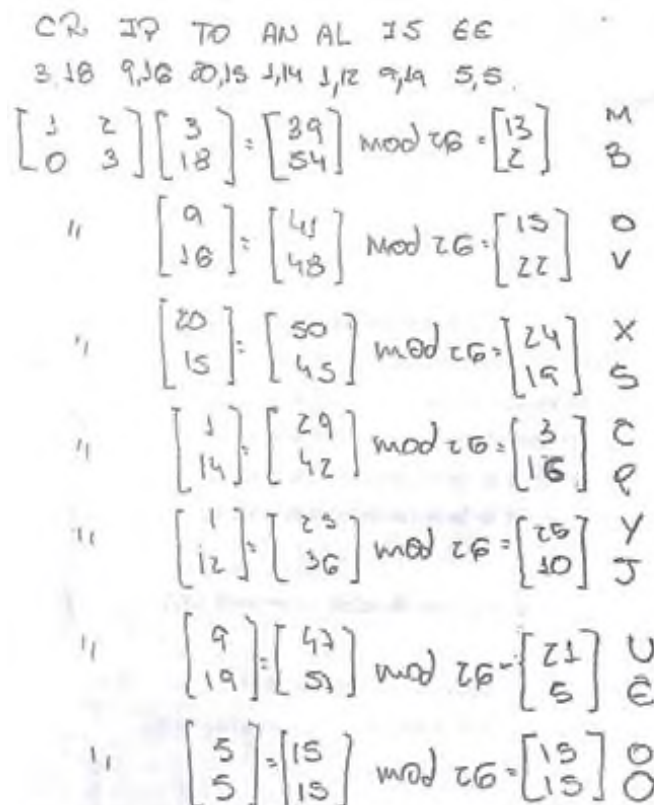 CR IP TO AN AL IS EE
3,18 9,16 20,15 1,14 1,12 9,19 5,5
[1 2; 0 3] [3; 18] = [39; 54] mod 26 = [13; 2] M B
" [9; 16] = [41; 48] mod 26 = [15; 22] O V
" [20; 15] = [50; 45] mod 26 = [24; 19] X S
" [1; 14] = [29; 42] mod 26 = [3; 16] C P
" [1; 12] = [25; 36] mod 26 = [25; 10] Y J
" [9; 19] = [47; 57] mod 26 = [21; 5] U E
" [5; 5] = [15; 15] mod 26 = [15; 15] O O